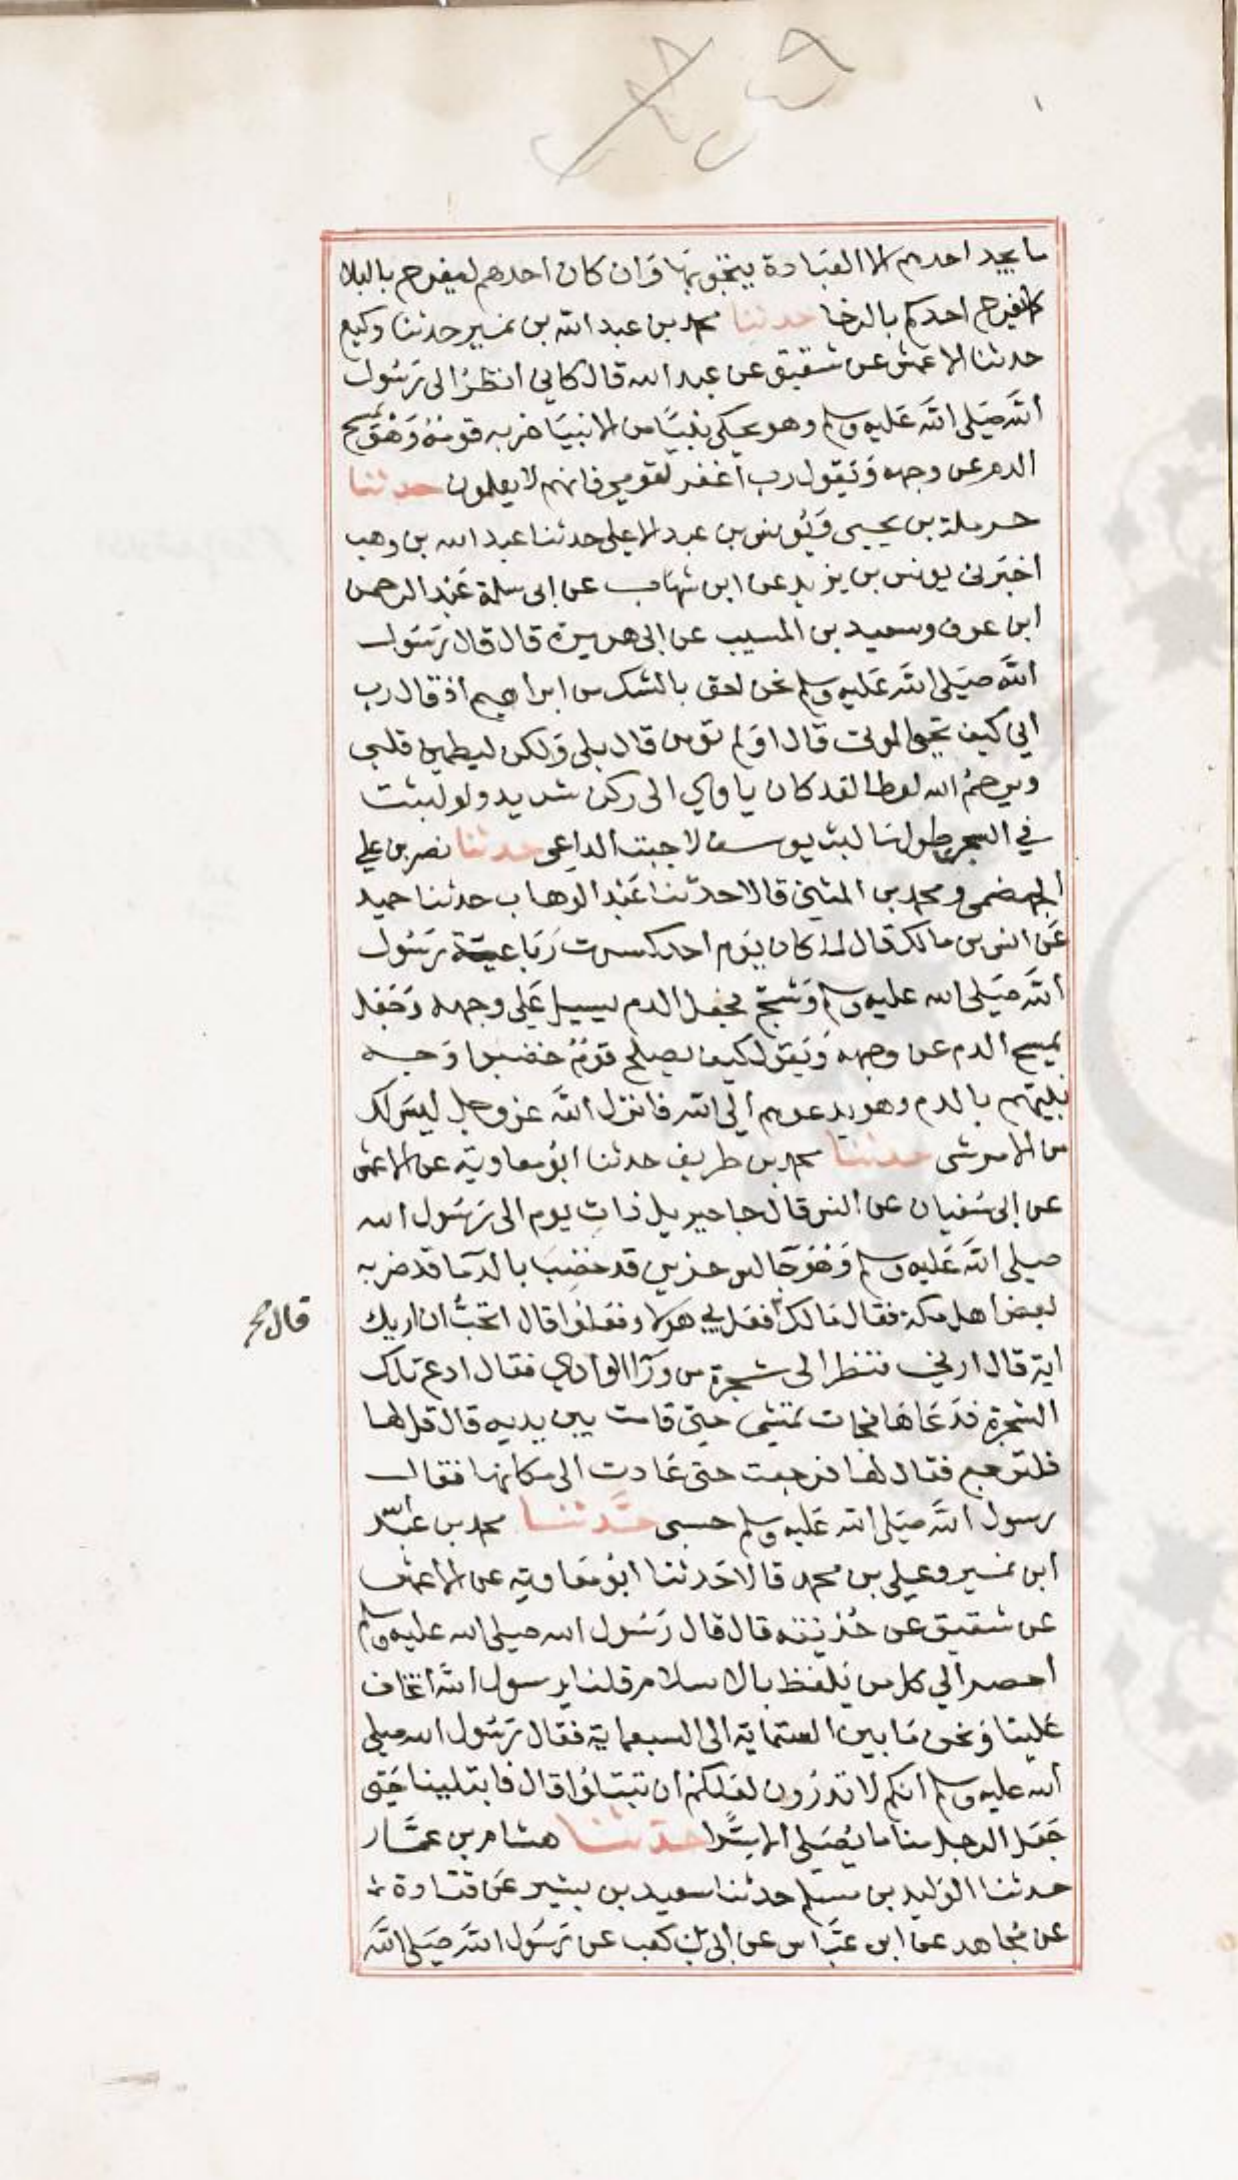 ما يجد احدهم الا العبادة يتجوبها وان كان احدهم ليفرح بالبلا
كما يفرح احدكم بالرخا حدثنا محمد بن عبد الله بن نمير حدثنا وكيع
حدثنا الاعمش عن شقيق عن عبد الله قال كاني انظر الى رسول
الله صلى الله عليه وسلم وهو يحكى نبيا من الانبيا ضربه قومه وهو يمسح
الدم عن وجهه ويقول رب اغفر لقومي فانهم لا يعلمون حدثنا
حرملة بن يحيى ويونس بن عبد الاعلى حدثنا عبد الله بن وهب
اخبرنى يونس بن يزيد عن ابن شهاب عن ابى سلمة عبد الرحمن
ابن عوف وسعيد بن المسيب عن ابى هريرة قال قال رسول
الله صلى الله عليه وسلم نحن احق بالشك من ابراهيم اذ قال رب
ارني كيف تحي الموتى قال اولم تومن قال بلى ولكن ليطمين قلبى
ويرحم الله لوطا لقد كان ياوي الى ركن شديد ولو لبثت
في السجن طول ما لبث يوسف لاجبت الداعى حدثنا نصر بن علي
الجهضمى ومحمد بن المثنى قالا حدثنا عبد الوهاب حدثنا حميد
عن انس بن مالك قال لما كان يوم احد كسرت رباعية رسول
الله صلى الله عليه وسلم وشج فجعل الدم يسيل على وجهه وجعل
يمسح الدم عن وجهه ويقول كيف يصلح قوم خضبوا وجه
نبيهم بالدم وهو يدعوهم الى الله فانزل الله عز وجل ليس لك
من الامر شى حدثنا محمد بن طريف حدثنا ابو معاوية عن الاعمش
عن ابى سفيان عن انس قال جا جبريل ذات يوم الى رسول الله
صلى الله عليه وسلم وهو جالس حزين قد خضب بالدما قد ضربه
بعض اهل مكة فقال مالك فقال فعل بي هولا وفعلوا قال اتحب ان اريك
قال صح
اية قال ارني فنظر الى شجرة من ورا الوادي فقال ادع تلك
الشجرة فدعاها فجات تمشى حتى قامت بين يديه قال قل لها
فلترجع فقال لها فرجعت حتى عادت الى مكانها فقال
رسول الله صلى الله عليه وسلم حسبى حدثنا محمد بن عبد الله
ابن نمير وعلي بن محمد قالا حدثنا ابو معاوية عن الاعمش
عن شقيق عن حذيفه قال قال رسول الله صلى الله عليه وسلم
احصوا لي كل من تلفظ بالاسلام قلنا يرسول الله اتخاف
علينا ونحن ما بين الستماية الى السبعماية فقال رسول الله صلى
الله عليه وسلم انكم لا تدرون لعلكم ان تبتلوا قال فابتلينا حتى
جعل الرجل منا ما يصلى الا سرا حدثنا هشام بن عمار
حدثنا الوليد بن مسلم حدثنا سعيد بن بشير عن قتادة
عن مجاهد عن ابن عباس عن ابى بن كعب عن رسول الله صلى الله